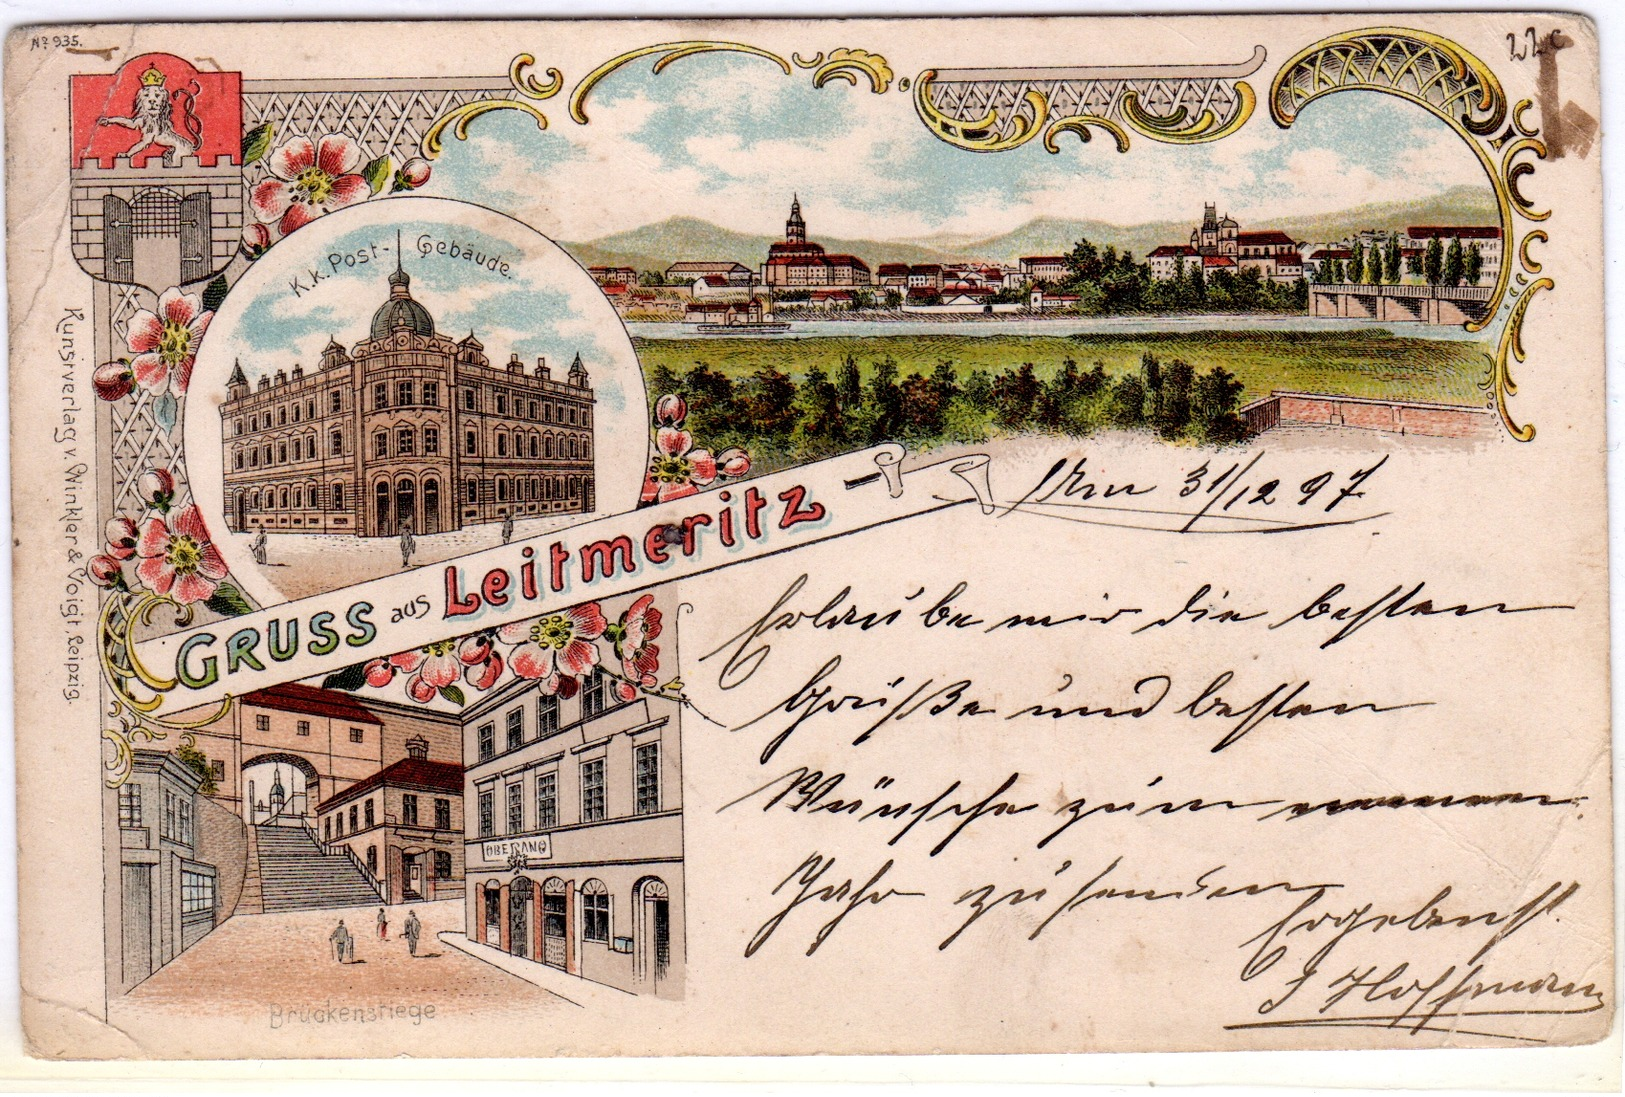 No 935.
22c
K. k. Post-Gebäude.
Kunstverlag v. Winkler & Voigt, Leipzig.
GRUSS aus Leitmeritz
Am 31/12 97
Erlaube mir die besten
Grüße und besten
Wünsche zum neuen
Jahr zu senden
Ergebenst
J Hoffmann
Brückenstiege